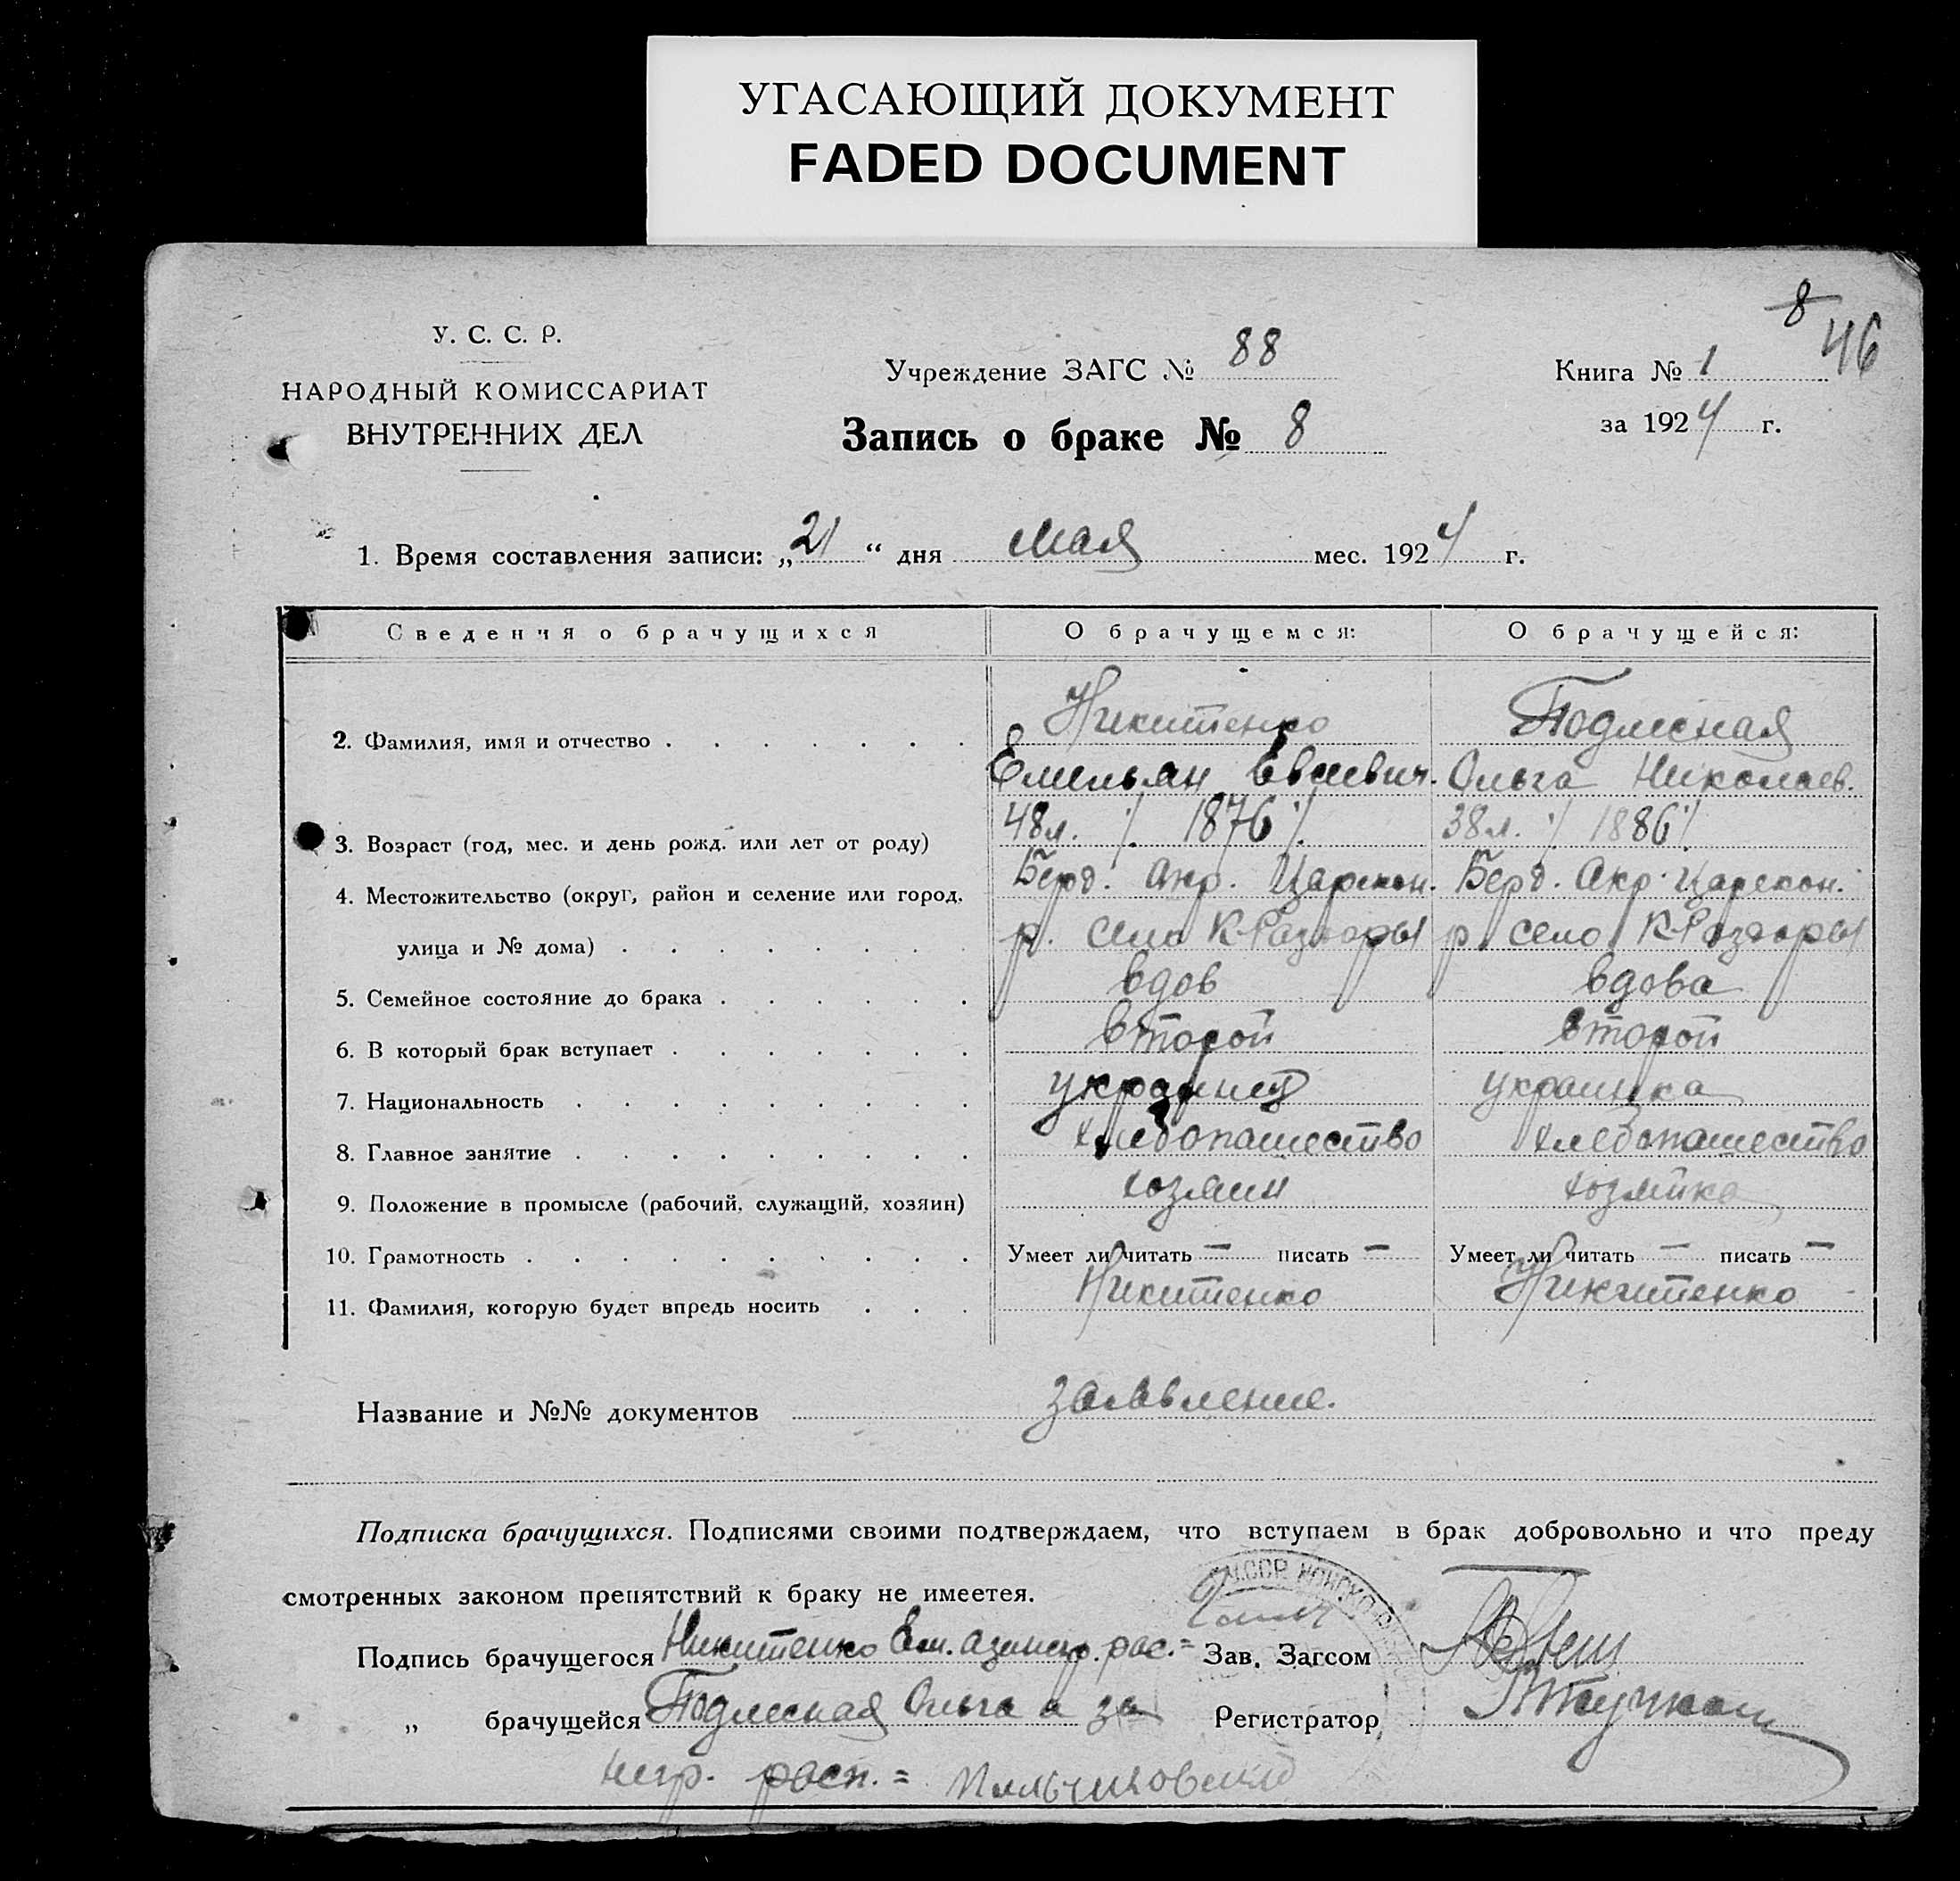 УГАСАЮЩИЙ ДОКУМЕНТ
FADED DOCUMENT
8
46
У. С. С. Р.
НАРОДНЫЙ КОМИССАРИАТ
ВНУТРЕННИХ ДЕЛ
Учреждение ЗАГС № 88
Запись о браке № 8
Книга № 1
за 1924 г.
1. Время составления записи: „21“ дня мая мес. 1924 г.
Сведения о брачущихся О брачущемся: О брачущейся:
2. Фамилия, имя и отчество Никитенко Подлесная
Емельян Евсеевич. Ольга Николаев.
3. Возраст (год, мес. и день рожд. или лет от роду) 48л. 1876 38л. 1886
4. Местожительство (округ, район и селение или город, Берд. Окр. Царекон. Берд. Окр. Царекон.
улица и № дома) р. село К-Раздоры р село К-Раздоры
5. Семейное состояние до брака вдов вдова
6. В который брак вступает второй второй
7. Национальность украинец украинка
8. Главное занятие хлебопашество хлебопашество
9. Положение в промысле (рабочий, служащий, хозяин) хозяин хозяйка
10. Грамотность Умеет ли читать — писать — Умеет ли читать — писать —
11. Фамилия, которую будет впредь носить Никитенко Никитенко
Название и №№ документов заявление.
Подписка брачущихся. Подписями своими подтверждаем, что вступаем в брак добровольно и что преду
смотренных законом препятствий к браку не имеется.
Подпись брачущегося Никитенко Ем. а за негр. рас.= Зав. Загсом
„ брачущейся Подлесная Ольга а за Регистратор
негр. расп. =